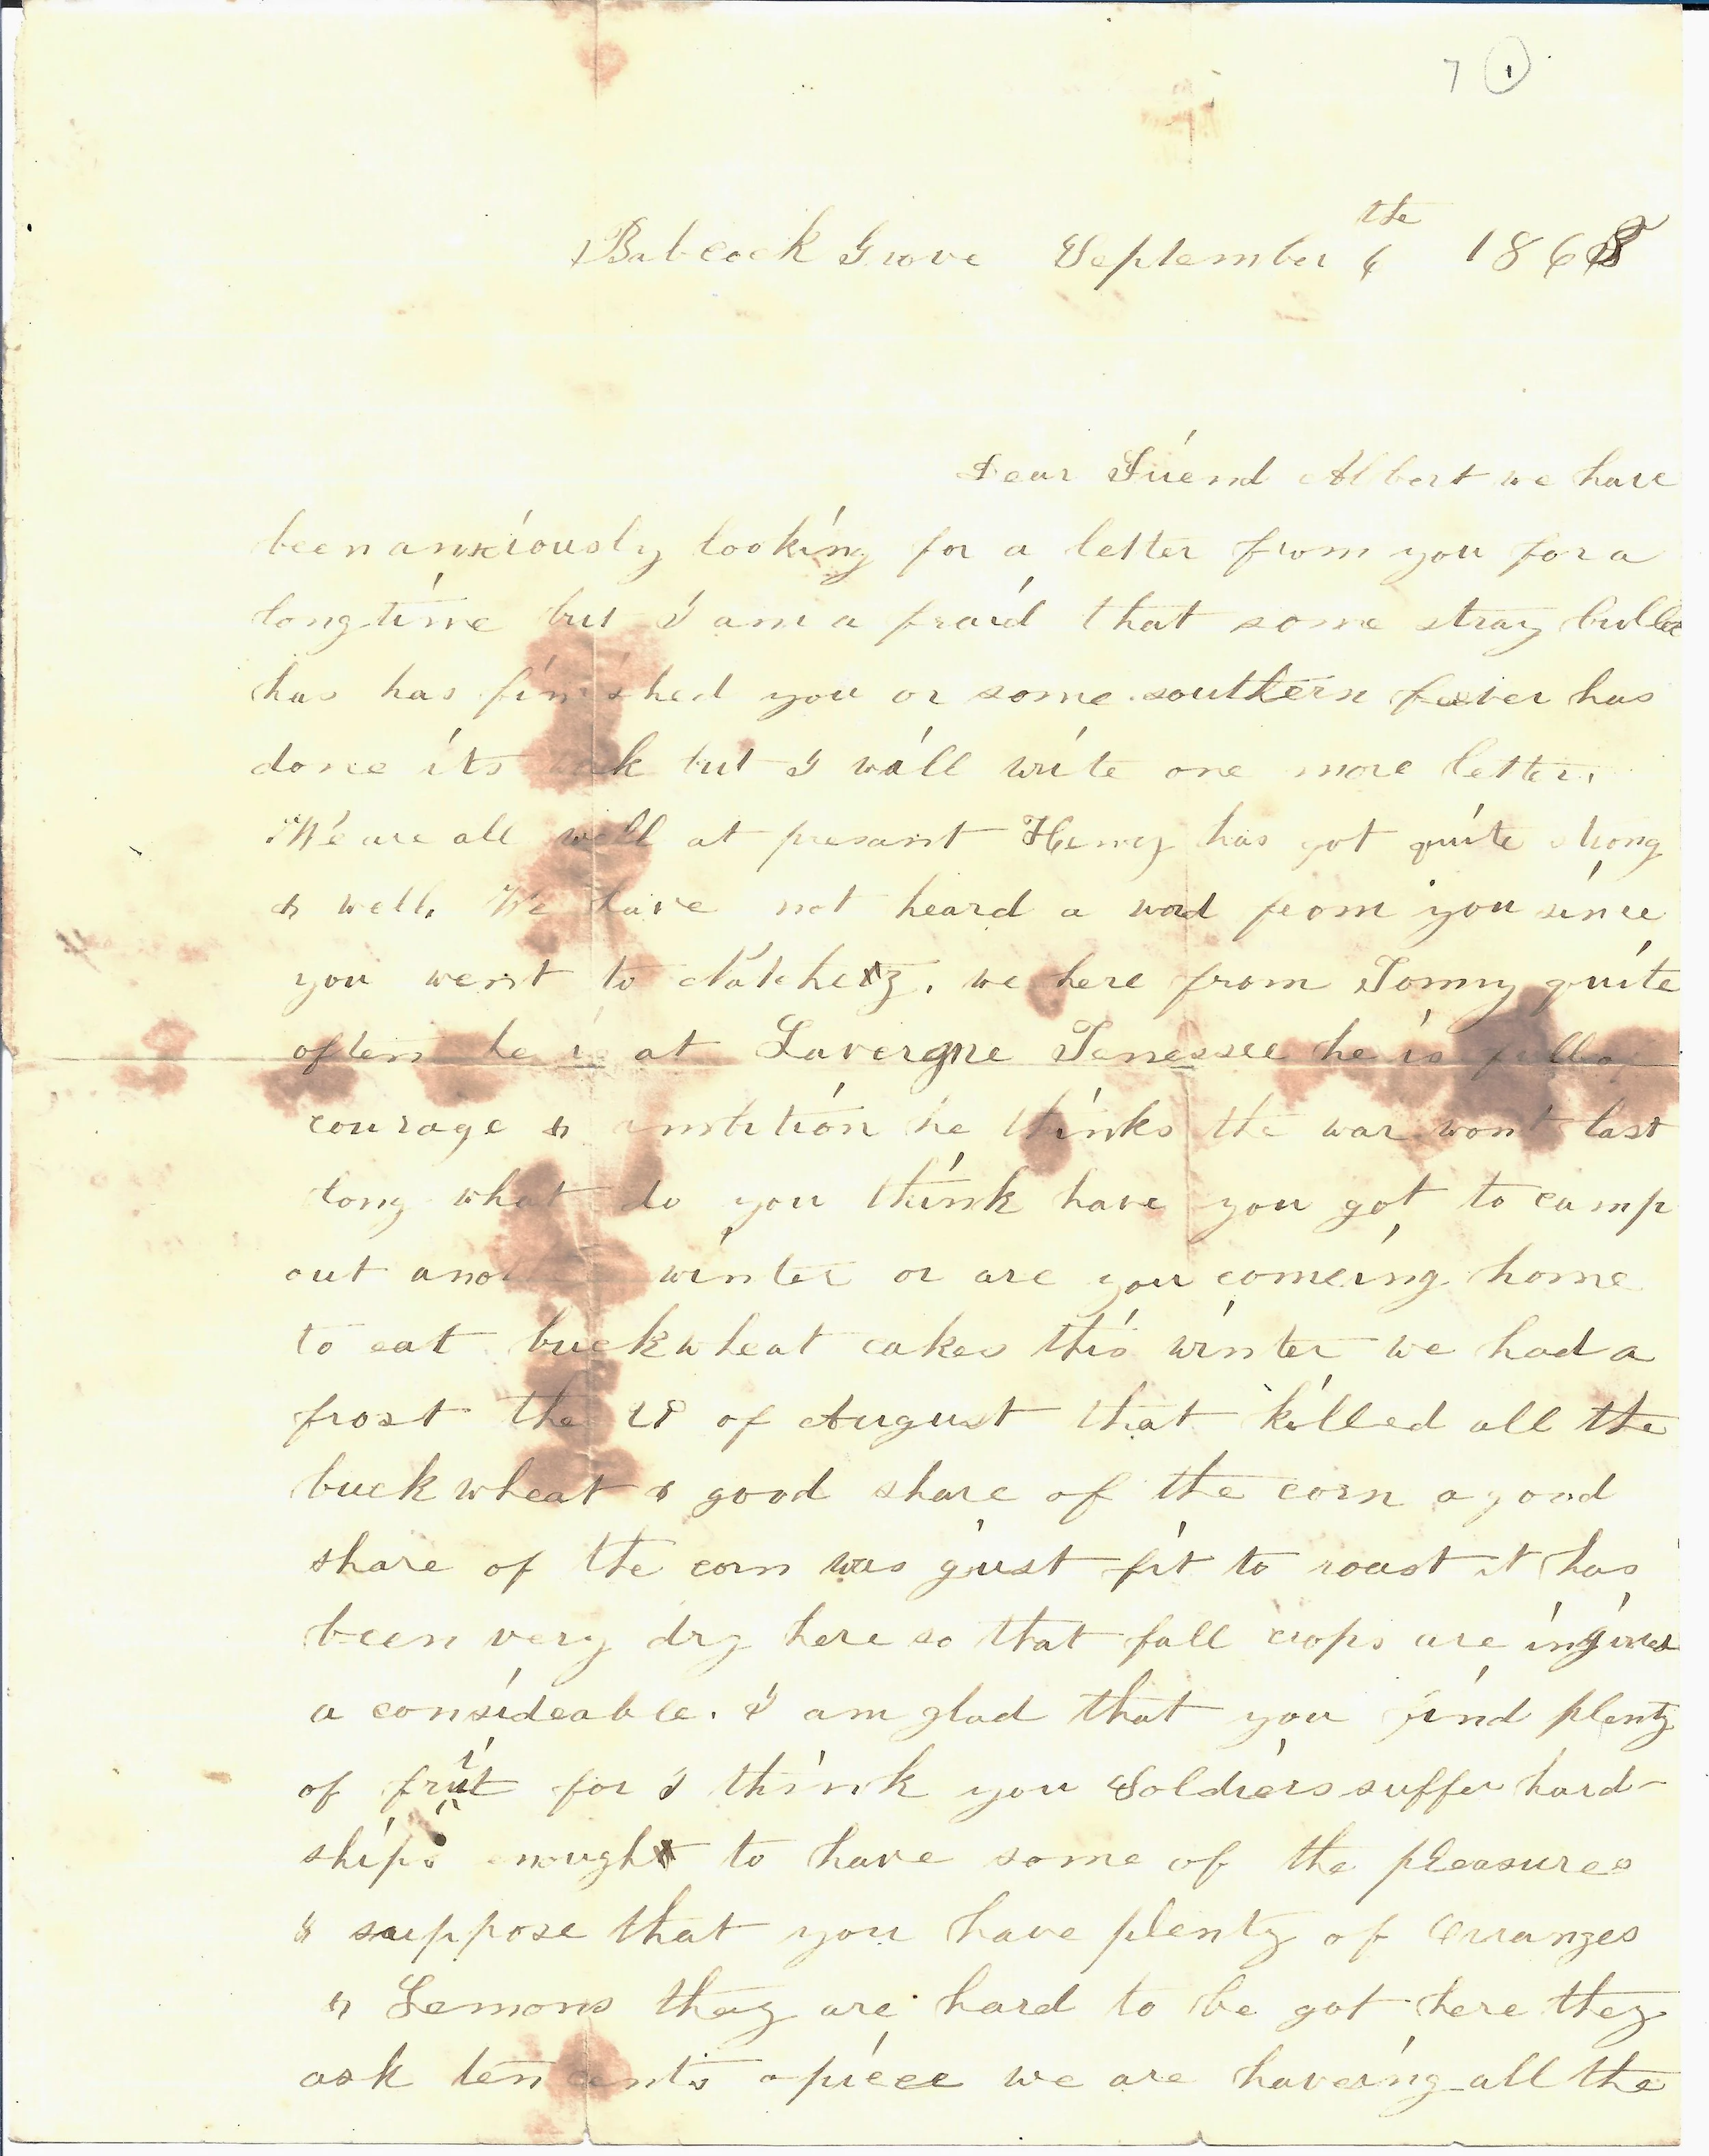 7 1
Babcock Grove September 6 the 186
Dear Friend Albert we have
been anxiously looking for a letter from you for a
long time but I am a fraid that some stray bulle
has has finished you or some southern feever has
done its but I will write one more letter.
We are all well at presant Henry has got quite strong
& well. We have not heard a word from you since
you went to Natchez. we here from Tommy quite
often he is at Lavergne Tenessee he is full of
courage & ambition he thinks the war wont last
long what do you think have you got to camp
out another winter or are you comeing home
to eat buckwheat cakes this winter we had a
frost the of August that killed all the
buck wheat & good share of the corn a good
share of the corn was gust fit to roast it has
been very dry here so that fall crops are ingured
a consideable. I am glad that you find plenty
of fruit for I think you Soldiers suffer hard-
ships enough to have some of the pleasures
I suppose that you have plenty of Orranges
& Lemons they are hard to be got here they
ask ten cents apiece we are haveing all the